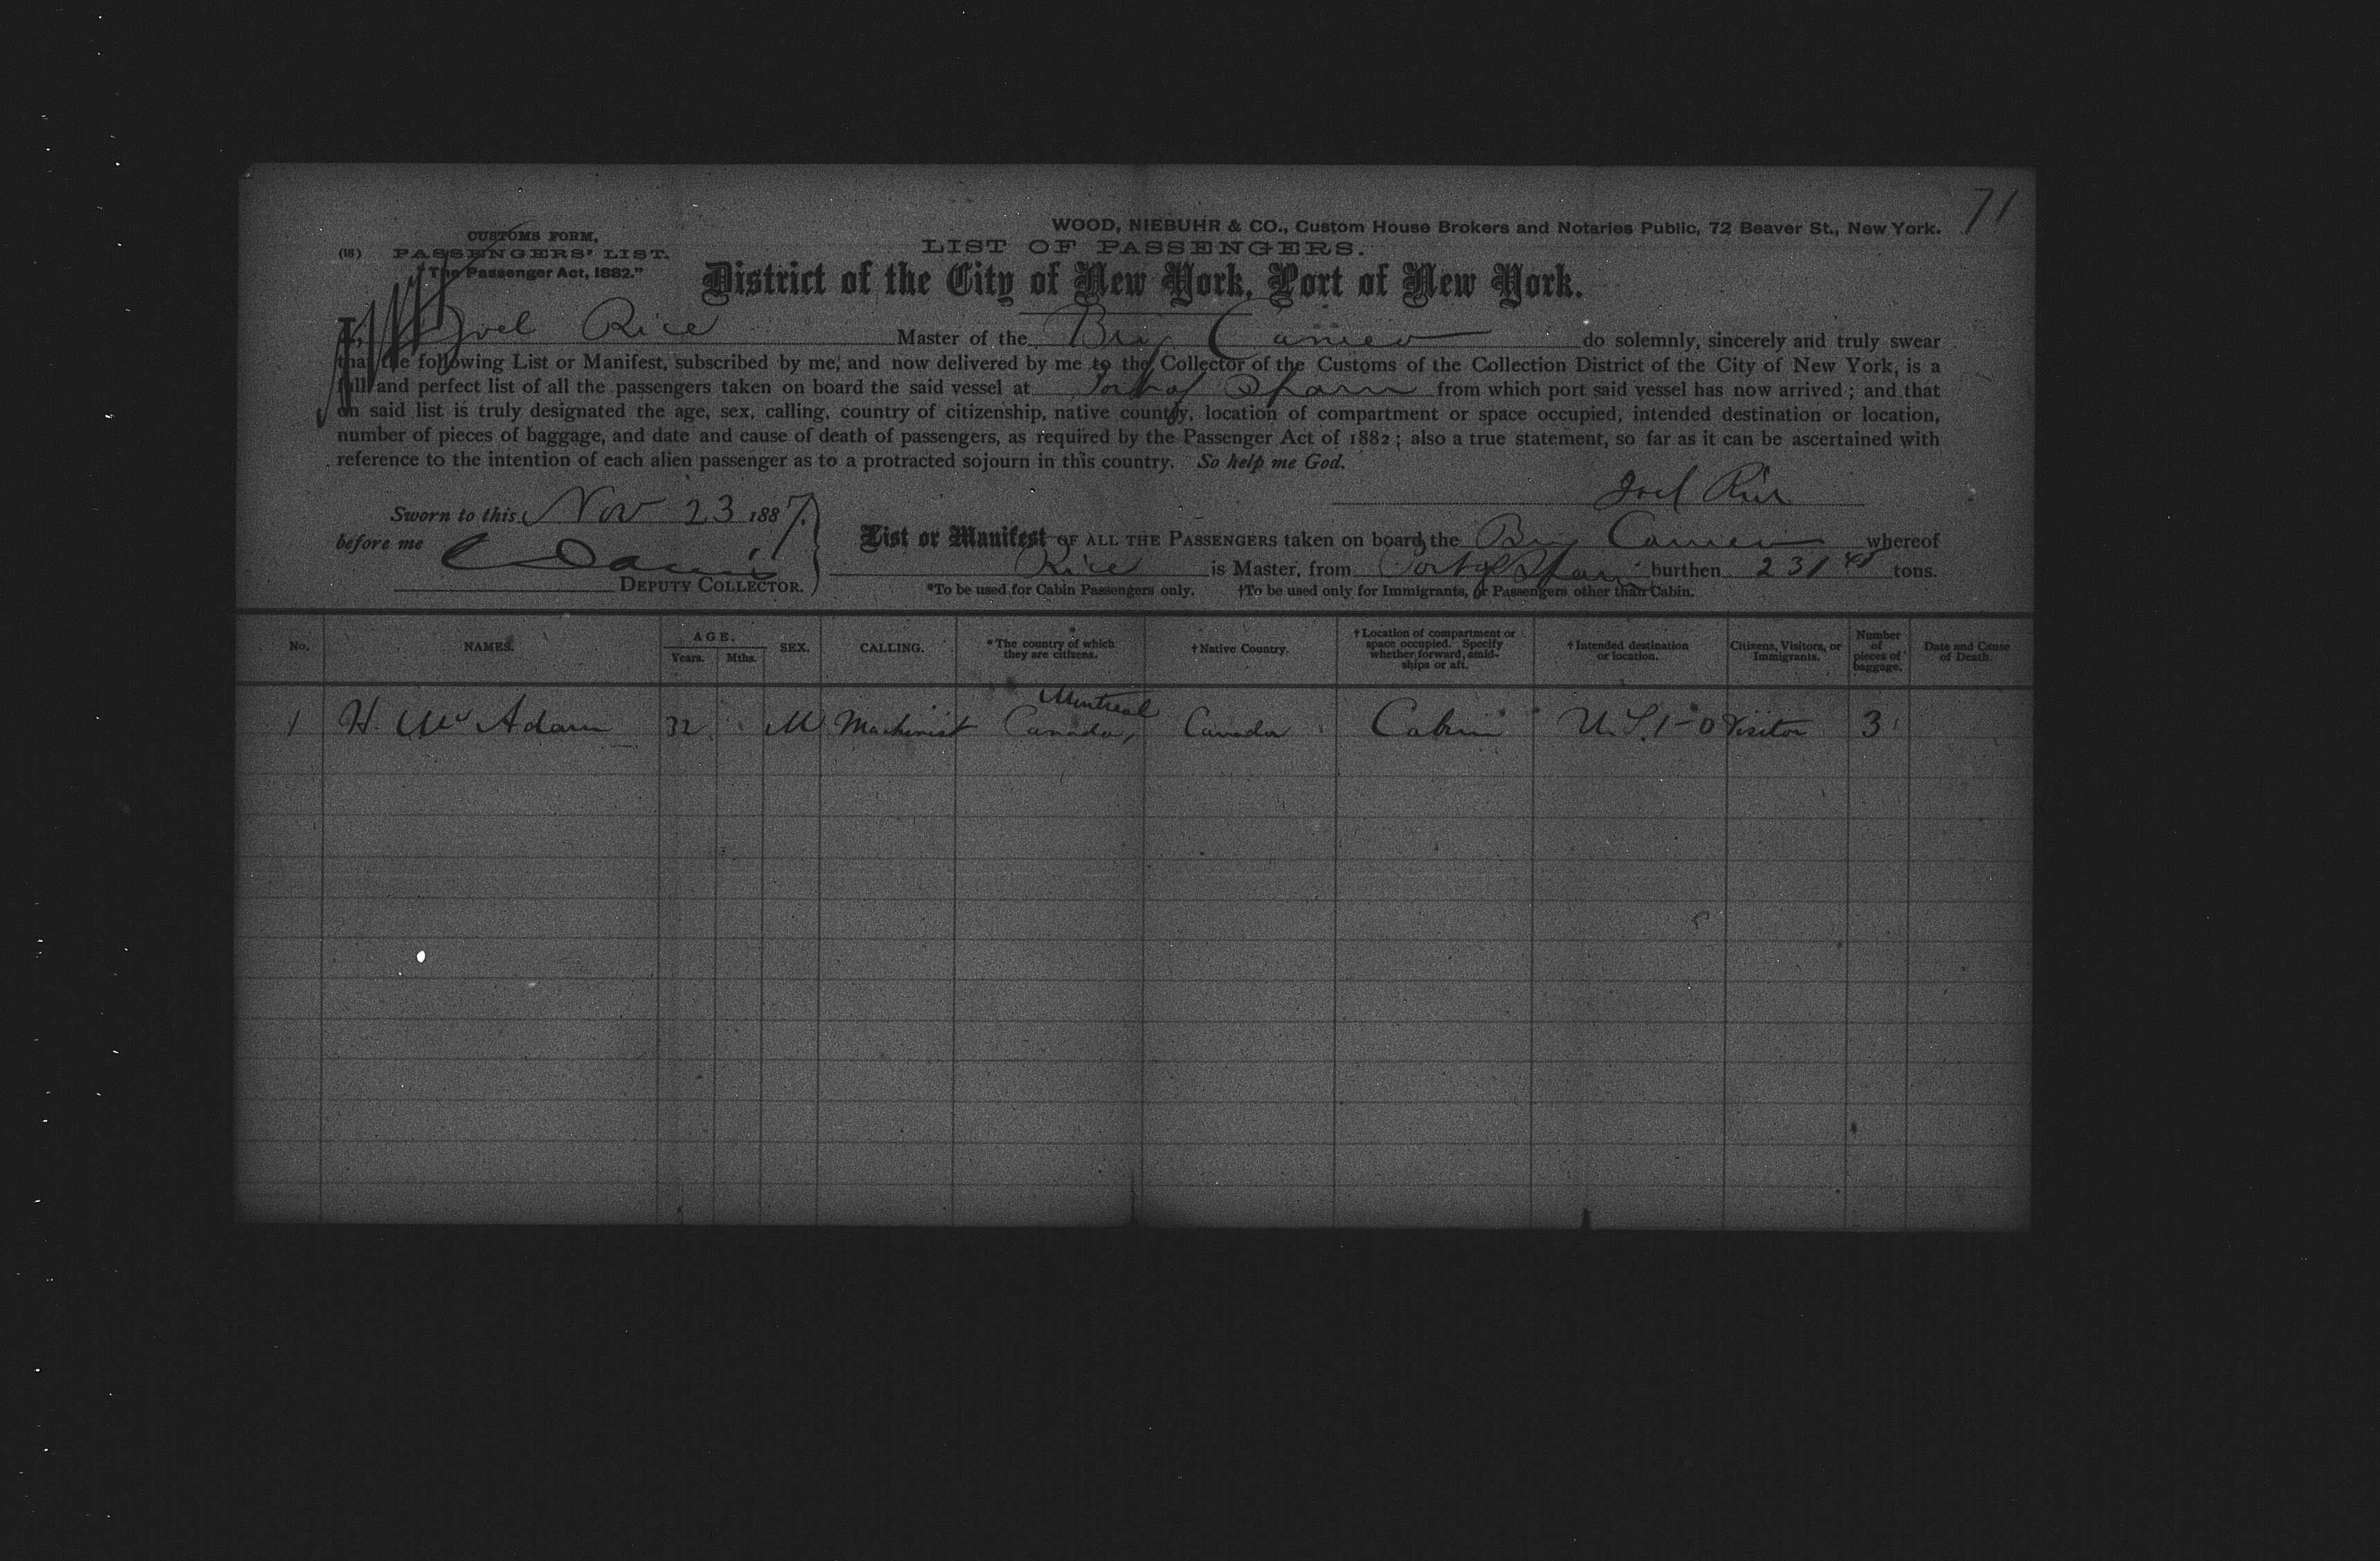 71
WOOD, NIEBUHR & CO., Custom House Brokers and Notaries Public, 72 Beaver St., New York.
CUSTOMS FORM,
(18) PASSENGERS' LIST.
"The Passenger Act, 1882."
LIST OF PASSENGERS.
District of the City of New York, Port of New York.
I, Joel Rice Master of the Brig Cameo do solemnly, sincerely and truly swear
that the following List or Manifest, subscribed by me, and now delivered by me to the Collector of the Customs of the Collection District of the City of New York, is a
full and perfect list of all the passengers taken on board the said vessel at Port of Spain from which port said vessel has now arrived; and that
on said list is truly designated the age, sex, calling, country of citizenship, native country, location of compartment or space occupied, intended destination or location,
number of pieces of baggage, and date and cause of death of passengers, as required by the Passenger Act of 1882; also a true statement, so far as it can be ascertained with
reference to the intention of each alien passenger as to a protracted sojourn in this country. So help me God.
Joel Rice
Sworn to this Nov 23 1887.
before me C Davis
DEPUTY COLLECTOR.
List or Manifest OF ALL THE PASSENGERS taken on board the Brig Cameo whereof
Rice is Master, from Port of Spain burthen 231 tons.
*To be used for Cabin Passengers only. †To be used only for Immigrants, or Passengers other than Cabin.
No. NAMES. AGE. Years. Mths. SEX. CALLING. *The country of which they are citizens. †Native Country. †Location of compartment or space occupied. Specify whether forward, amidships or aft. †Intended destination or location. Citizens, Visitors, or Immigrants. Number of pieces of baggage. Date and Cause of Death.
1 H. Mc Adam 32 M Machinist Montreal Canada, Canada Cabin U.S. Visitor 3